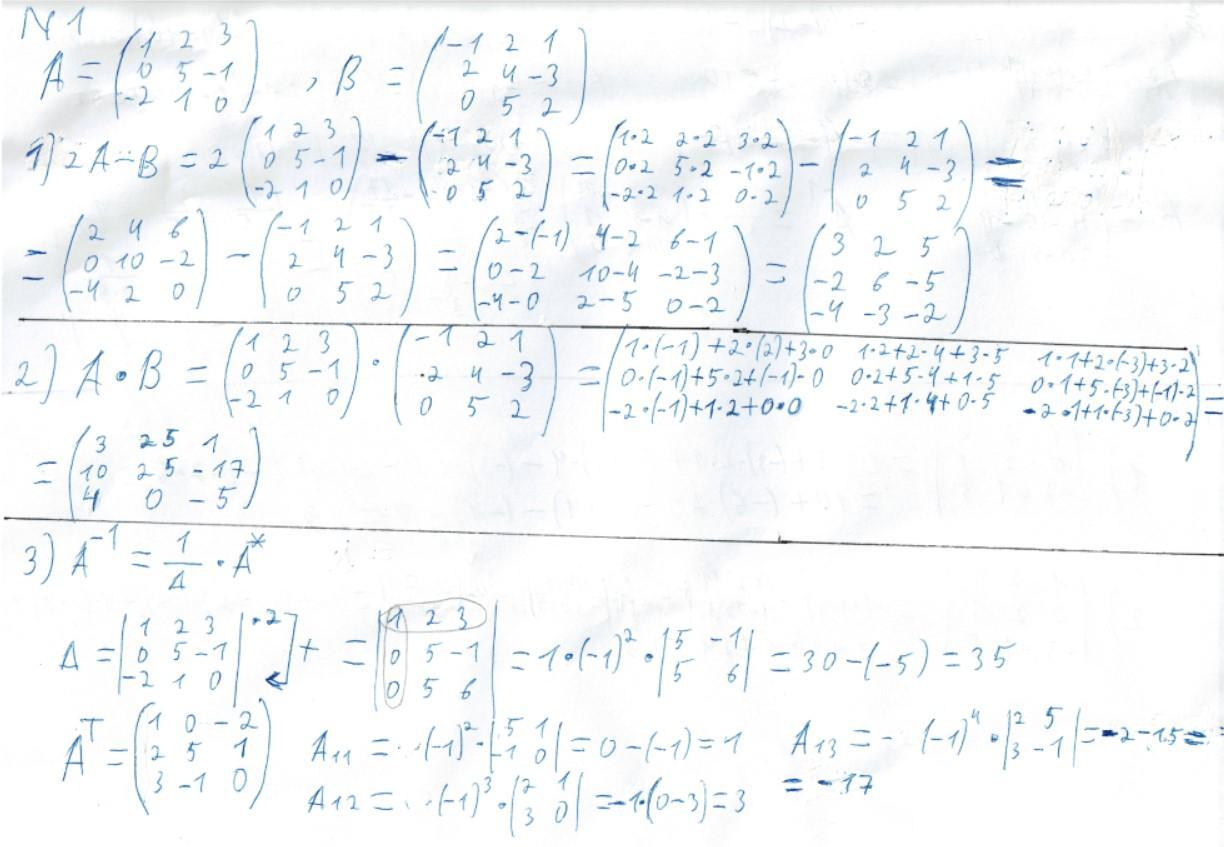 N 1
A = (1 2 3; 0 5 -1; -2 1 0), B = (-1 2 1; 2 4 -3; 0 5 2)
1) 2A - B = 2 (1 2 3; 0 5 -1; -2 1 0) - (-1 2 1; 2 4 -3; 0 5 2) = (1·2 2·2 3·2; 0·2 5·2 -1·2; -2·2 1·2 0·2) - (-1 2 1; 2 4 -3; 0 5 2) =
= (2 4 6; 0 10 -2; -4 2 0) - (-1 2 1; 2 4 -3; 0 5 2) = (2-(-1) 4-2 6-1; 0-2 10-4 -2-3; -4-0 2-5 0-2) = (3 2 5; -2 6 -5; -4 -3 -2)
2) A·B = (1 2 3; 0 5 -1; -2 1 0) · (-1 2 1; 2 4 -3; 0 5 2) = (1·(-1)+2·(2)+3·0 1·2+2·4+3·5 1·1+2·(-3)+3·2; 0·(-1)+5·2+(-1)·0 0·2+5·4+1·5 0·1+5·(-3)+(-1)·2; -2·(-1)+1·2+0·0 -2·2+1·4+0·5 -2·1+1·(-3)+0·2) =
= (3 25 1; 10 25 -17; 4 0 -5)
3) A⁻¹ = 1/Δ · A*
Δ = |1 2 3; 0 5 -1; -2 1 0| ·2 ]+ = |1 2 3; 0 5 -1; 0 5 6| = 1·(-1)² · |5 -1; 5 6| = 30-(-5) = 35
Aᵀ = (1 0 -2; 2 5 1; 3 -1 0) A₁₁ = ·(-1)² · |5 1; -1 0| = 0-(-1) = 1 A₁₃ = - (-1)⁴ · |2 5; 3 -1| = -2-15 =
A₁₂ = ·(-1)³ · |2 1; 3 0| = -1·(0-3) = 3 = -17